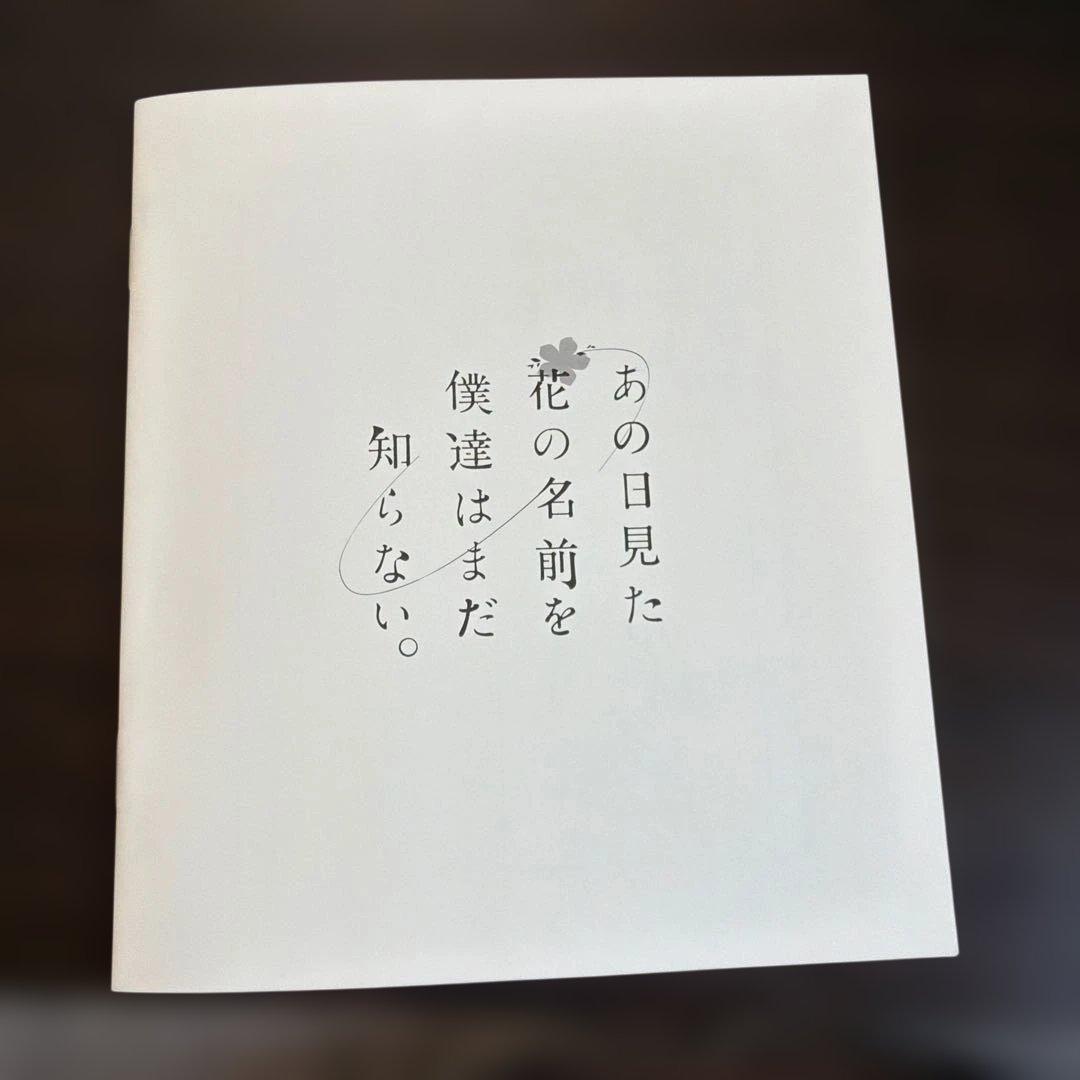 あの日見た
花の名前を
僕達はまだ
知らない。